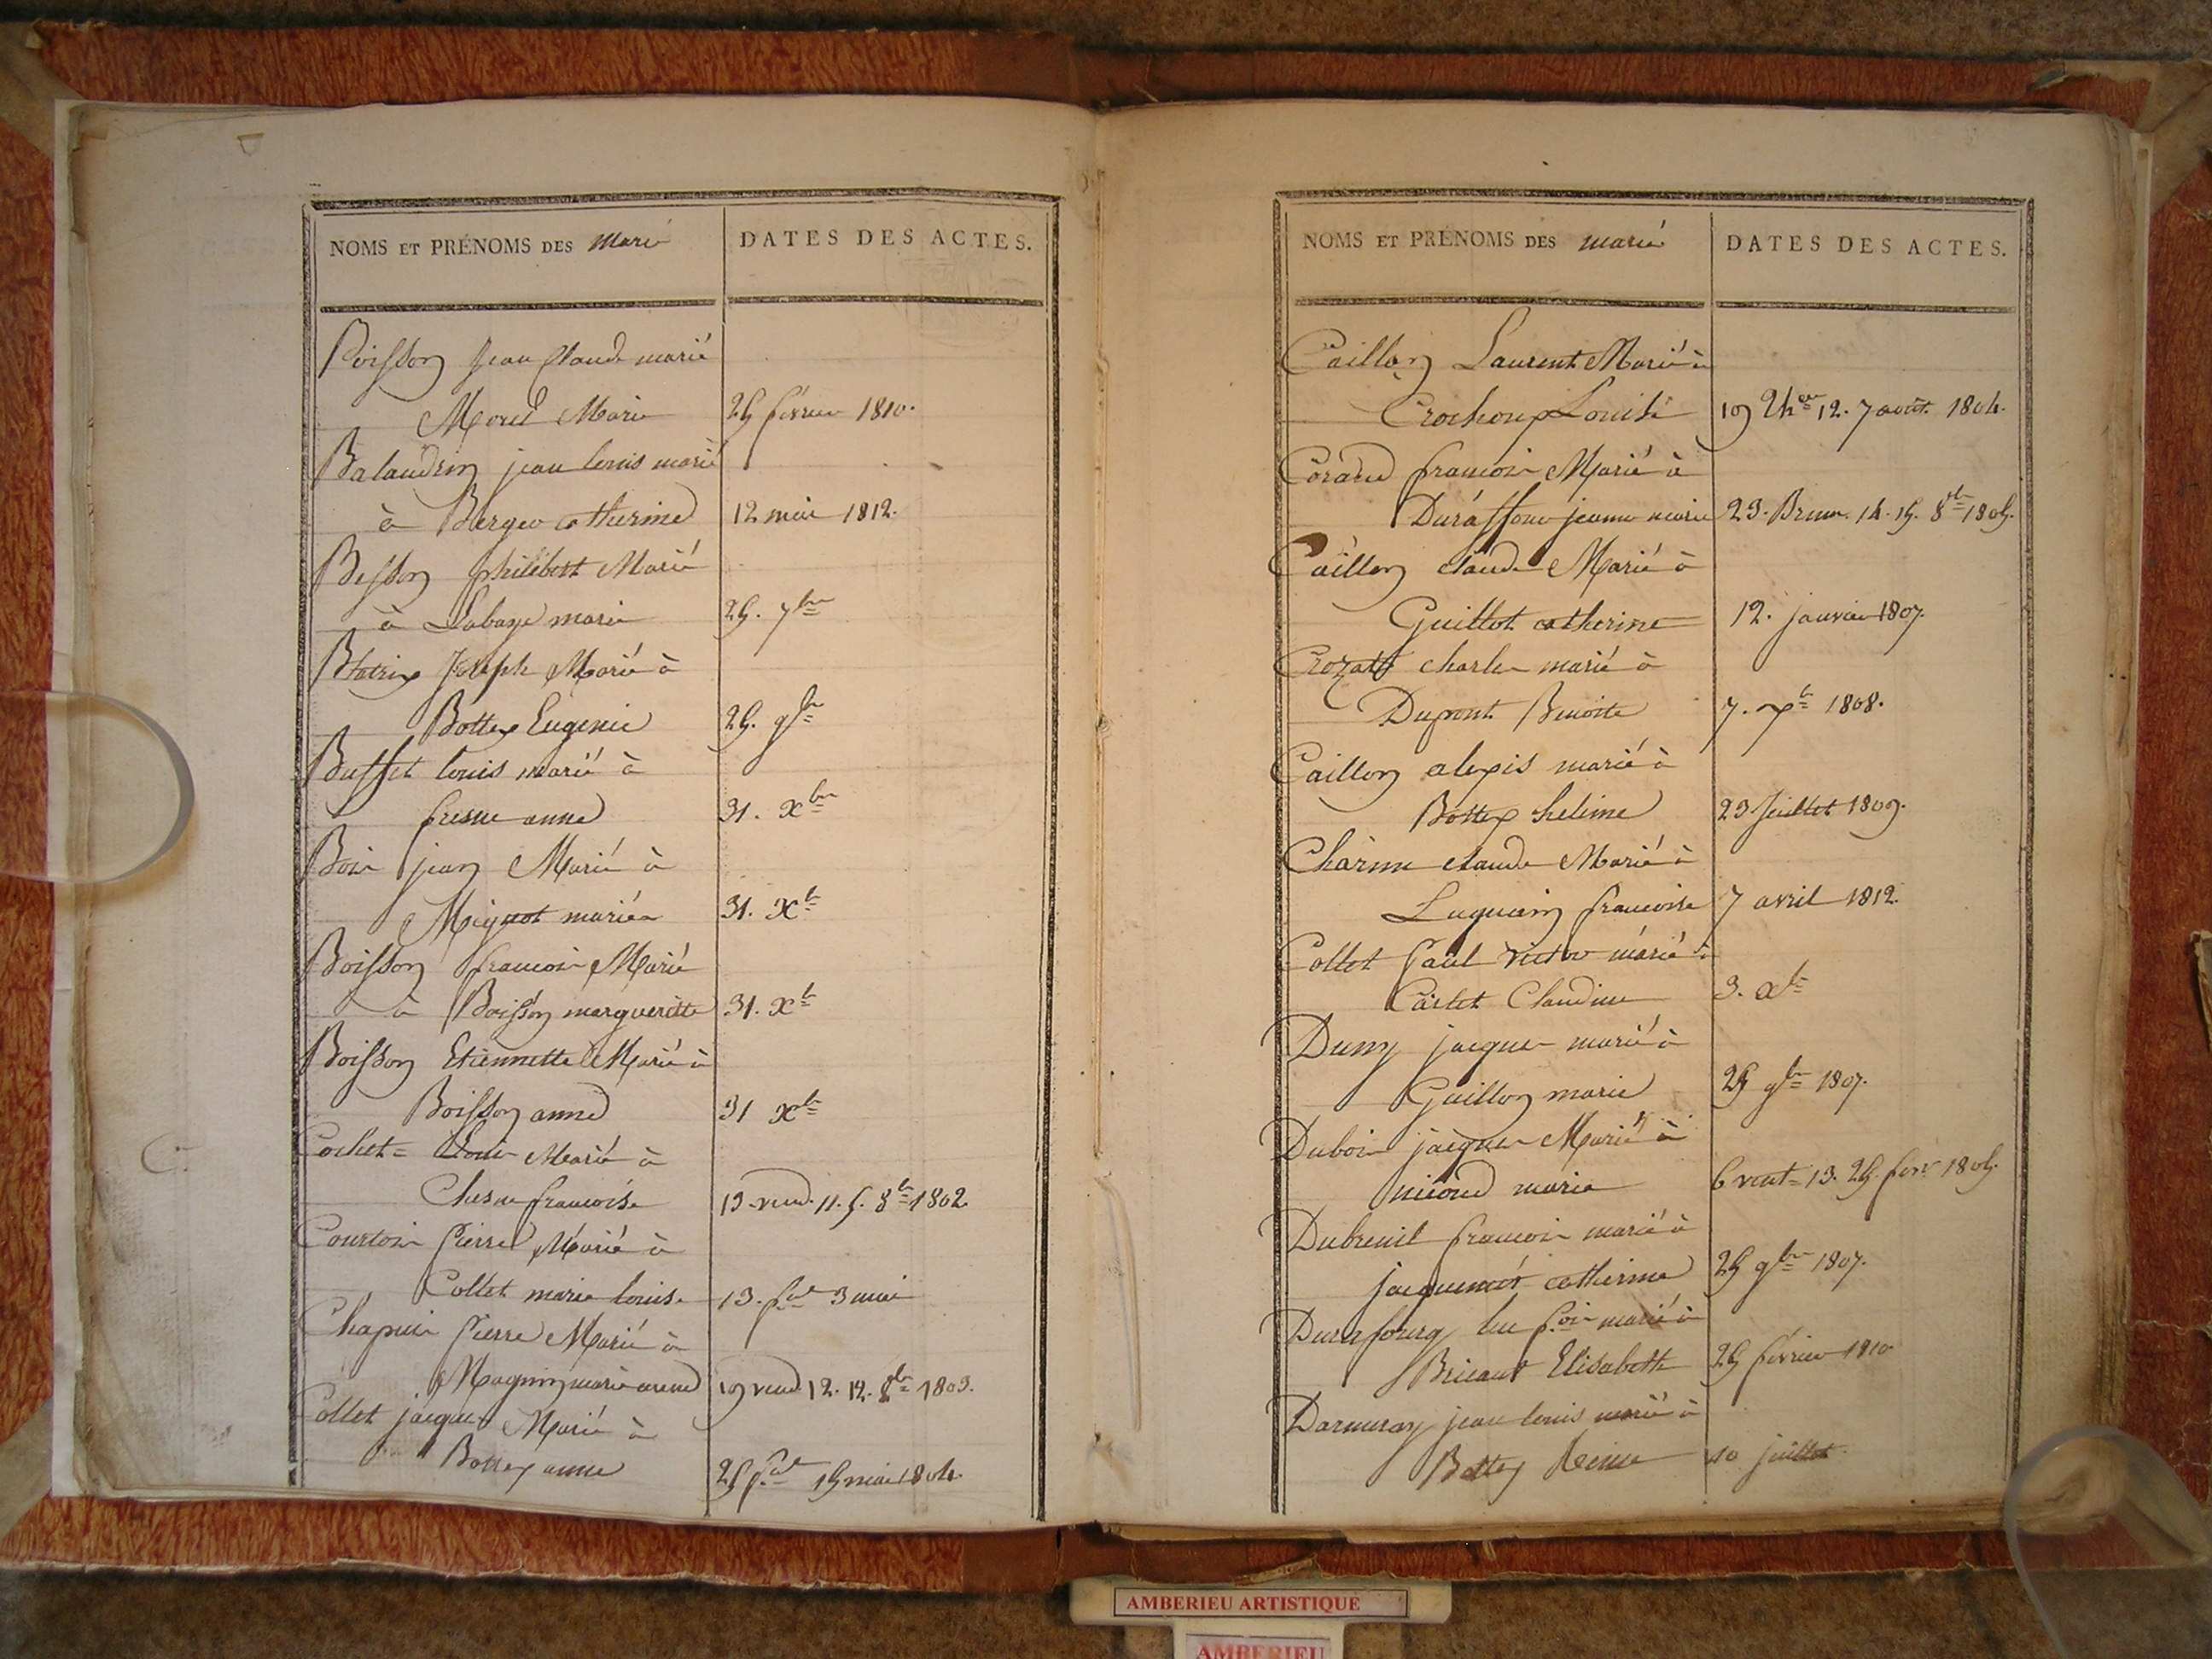 NOMS ET PRÉNOMS DES Marié
DATES DES ACTES.
Boisson Jean Claude marié
Morel Marie 25 février 1810.
Balaudrin jean louis marié
à Berger catherine 12 mai 1812.
Besson philibert Marié
à Labaye marie 25. 7bre
Blatrix Joseph Marié à
Bottex Eugenie 25. 9bre
Buffet louis marié à
fresne anne 31. Xbre
Bois jean Marié à
Mignot mariée 31. Xbre
Boisson francois Marié
à Boisson margueritte 31. Xbre
Boisson Etiennette Marié à
Boisson anne 31 Xbre
Cochet = Louis Marié à
Chesne francoise 13. vend. 11. 5. 8bre 1802.
Courtois Pierre Marié à
Collet marie louise 13. fal 3 mai
Chapuis Pierre Marié à
Magnin marie 19 vend. 12. 12. 8bre 1803.
Collet jacques Marié à
Bottex anne 25 fal 15 mai 1804.
NOMS ET PRÉNOMS DES marié
DATES DES ACTES.
Caillon Laurent Marié à
Crochon Louise 19 Ther 12. 7 août 1804.
Corard francois Marié à
Duraffour jeanne marie 23. Brum. 14. 15. 8bre 1805.
Caillon claude Marié à
Guillot catherine 12. janvier 1807.
Crozat charles marié à
Dupont Benoite 7. 1808.
Caillon alexis marié à
Bottex helene 23 Juillet 1809.
Charme claude Marié à
Luquin francoise 7 avril 1812.
Collet Paul victor marié à
Carlet Claudine 3. Xbre
Duny jacques marié à
Guillon marie 25 9bre 1807.
Dubois jacques Marié à
miond marie 6 vent = 13. 25. fevr 1805.
Dubreuil francois marié à
jacquemet catherine 25 9bre 1807.
Durafourg luc fcois marié à
Bricaut Elisabeth 25 février 1810
Darmeray jean louis marié à
Bottex Reine 10 juillet.
AMBERIEU ARTISTIQUE
AMBERIEU